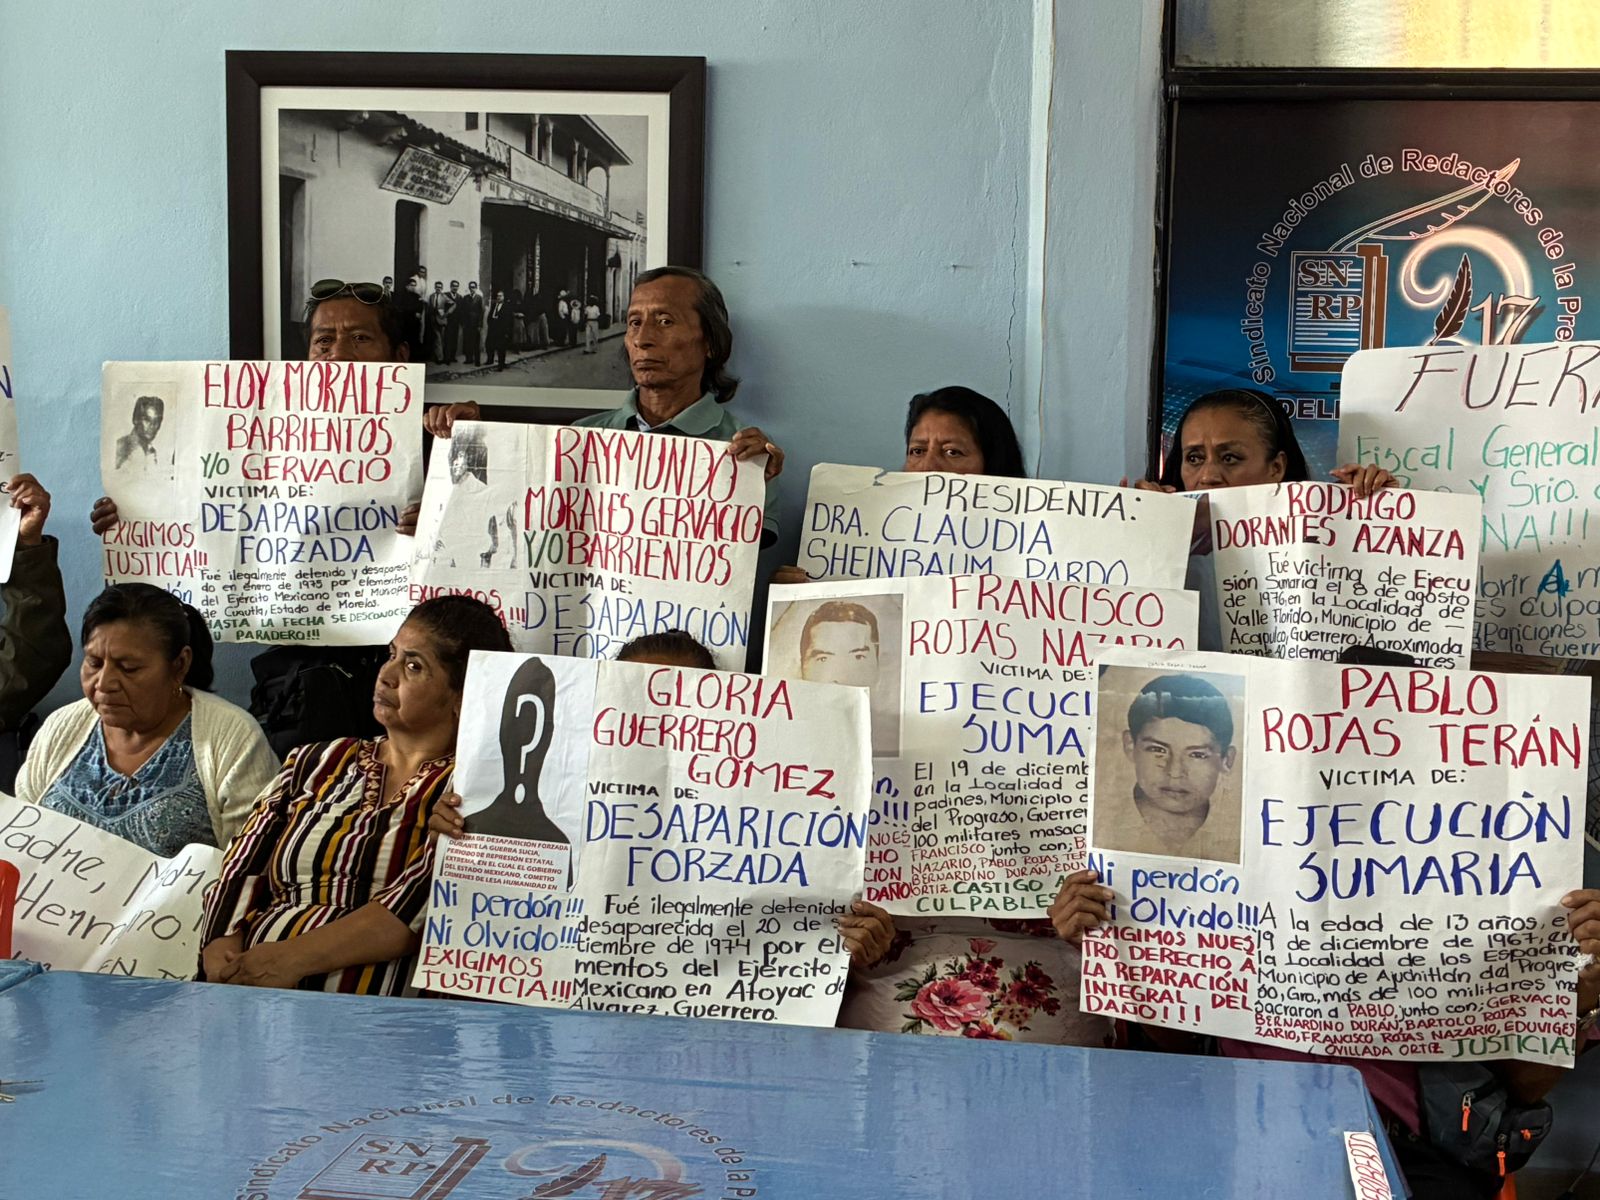 SINDICATO
NACIONAL
DE LA PRENSA
Sindicato Nacional de Redactores de la Pre
SN
RP
17
DEL
ELOY MORALES
BARRIENTOS
Y/O GERVACIO
VICTIMA DE:
DESAPARICIÓN
FORZADA
EXIGIMOS
JUSTICIA!!!
Fué ilegalmente detenido y desapareci-
do en enero de 1975 por elementos
del Ejército Mexicano en el Municipio
de Cuautla, Estado de Morelos.
HASTA LA FECHA SE DESCONOCE
SU PARADERO!!!
RAYMUNDO
MORALES GERVACIO
Y/O BARRIENTOS
VICTIMA DE:
DESAPARICIÓN
FORZ
EXIGIMOS
PRESIDENTA:
DRA. CLAUDIA
SHEINBAUM PARDO
RODRIGO
DORANTES AZANZA
Fué victima de Ejecu
sión Sumaria el 8 de agosto
de 1976, en la Localidad de
Valle Florido, Municipio de -
Acapulco, Guerrero; Aproximada
mente 40 element
FUERA
Fiscal General
y Srio.
NA!!!
culpa
Pariciones
de la Guerr
FRANCISCO
ROJAS NAZARIO
VICTIMA DE:
EJECUCI
SUMA
El 19 de diciemb
en la Localidad d
padines, Municipio
del Progreso, Guerre
100 militares masac
FRANCISCO junto con;
NAZARIO, PABLO ROJAS TER
BERNARDINO DURÁN, EDU
ORTIZ. CASTIGO A
CULPABLES
GLORIA
GUERRERO
GOMEZ
VICTIMA DE:
DESAPARICIÓN
FORZADA
?
VICTIMA DE DESAPARICIÓN FORZADA
DURANTE LA GUERRA SUCIA,
PERIODO DE REPRESIÓN ESTATAL
EXTREMA, EN EL CUAL EL GOBIERNO
DEL ESTADO MEXICANO, COMETIO
CRIMENES DE LESA HUMANIDAD EN
Ni perdón!!!
Ni Olvido!!!
EXIGIMOS
JUSTICIA!!!
Fué ilegalmente detenida
desaparecida el 20 de s
tiembre de 1974 por ele
mentos del Ejército -
Mexicano en Atoyac de
Alvarez, Guerrero.
PABLO
ROJAS TERÁN
VICTIMA DE:
EJECUCIÓN
SUMARIA
Ni perdón
Ni Olvido!!!
EXIGIMOS NUES
TRO DERECHO A
LA REPARACIÓN
INTEGRAL DEL
DAÑO!!!
A la edad de 13 años, el
19 de diciembre de 1967, en
la Localidad de los Espadin
Municipio de Ajuchitlán del Progre-
so, Gro., más de 100 militares ma
sacraron a PABLO, junto con; GERVACIO
BERNARDINO DURÁN, BARTOLO ROJAS NA-
ZARIO, FRANCISCO ROJAS NAZARIO, EDUVIGES
OVILLADA ORTIZ JUSTICIA!
Padre, Madre
Hermano!
EN
Sindicato Nacional de Redactores de la P
SN
RP